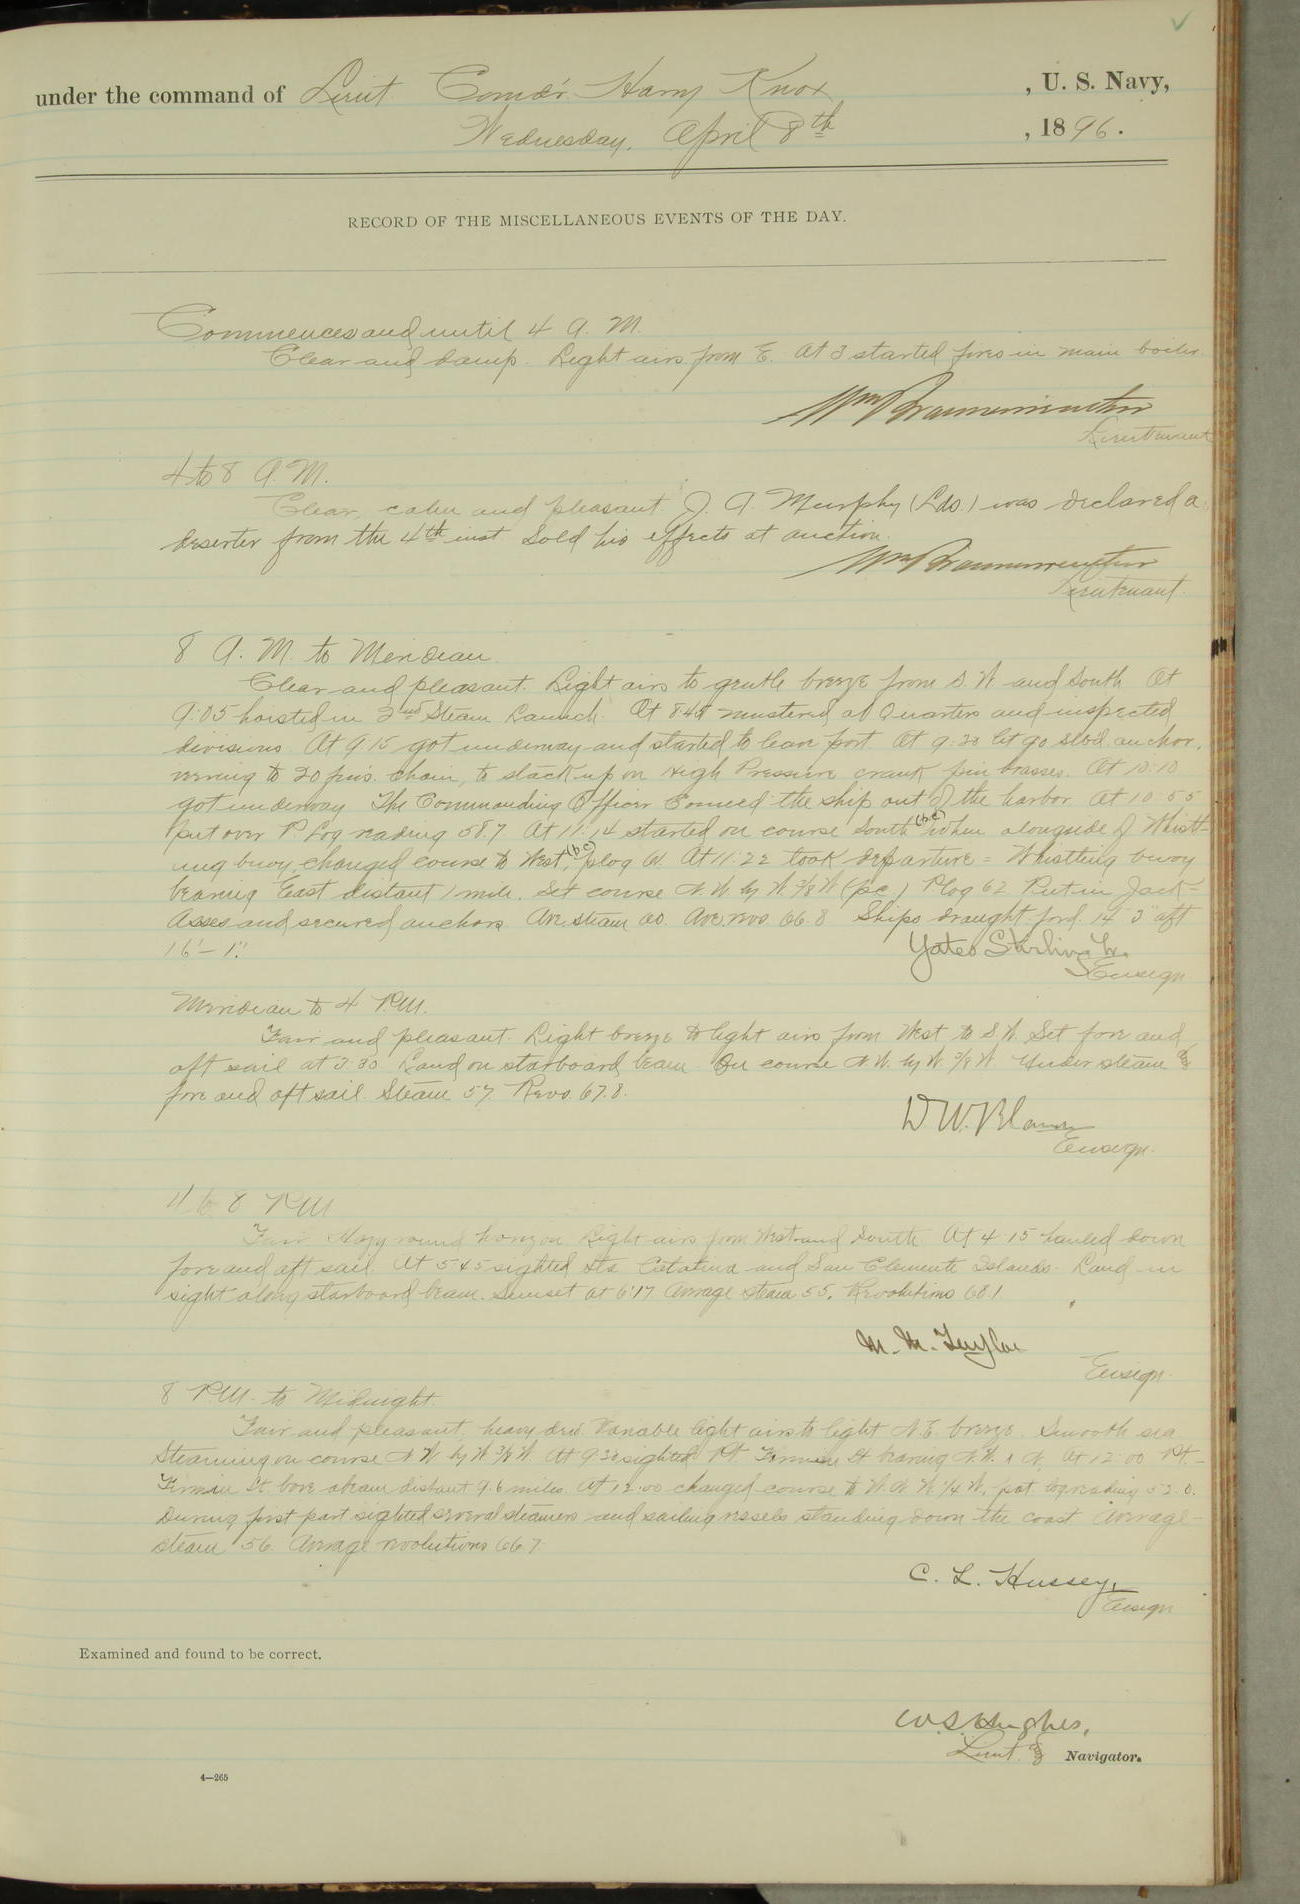 under the command of Lieut. Comd'r. Harry Knox, U. S. Navy,
Wednesday, April 8th, 1896.
RECORD OF THE MISCELLANEOUS EVENTS OF THE DAY.
Commences and until 4 A. M.
Clear and damp. Light airs from E. At 3 started fires in main boiler.
Lieutenant
4 to 8 A. M.
Clear, calm and pleasant J. A. Murphy (Lds.) was declared a
deserter from the 4th inst Sold his effects at auction.
Lieutenant.
8 A. M. to Meridian.
Clear and pleasant. Light airs to gentle breeze from S W and South At
9:05 hoisted in 2nd Steam Launch. At 8 45 mustered at Quarters and inspected
divisions. At 9.15 got underway and started to leave port. At 9:20 let go stbd. anchor,
veering to 20 fms. chain, to slack up on High Pressure crank pin brasses. At 10:10
got underway The Commanding Officer Conned the ship out of the harbor. At 10 55
Put over P Log reading 58.7 At 11.14 started on course South (p.c.) When alongside of Whistl-
ing buoy, changed course to West, (p.c.) plog 61. At 11:22 took departure = Whistling buoy
bearing East distant 1 mile. Set course N. W. by W. 3/8 W (p.c.) Plog 62 Put in Jack-
Asses and secured anchors Ave. steam 60. Ave. revs. 66.8 Ships draught ford. 14' 3" aft
16'-1".
Yates Stirling Jr.
Ensign
Meridian to 4 P.M.
Fair and pleasant. Light breeze to light airs from West to S W. Set fore and
aft sail at 3.30 Land on starboard beam On course N. W. by W. 3/8 W. Under steam &
fore and aft sail. Steam 57. Revs. 67.8.
D. W. Blamer
Ensign.
4 to 8 P.M
Fair Hazy round horizon Light airs from West and South At 4.15 hauled down
fore and aft sail. At 5 45 sighted Sta. Catalina and San Clemente Islands. Land in
sight along starboard beam. Sunset at 6:17 Average steam 55. Revolutions 68.1
M. M. Taylor
Ensign.
8 P.M. to Midnight.
Fair and pleasant, heavy dew. Variable light airs to light N. E. breeze. Smooth sea
Steaming on course N W by W 3/8 W. At 9 30 sighted Pt. Firmin Lt bearing N. W. At 12.00 Pt.-
Firmin Lt. bore abeam distant 9.6 miles. At 12.00 changed course to W. N. W. 1/4 W. pat log reading 52.0.
During first part sighted several steamers and sailing vessels standing down the coast Average
steam 56. Average revolutions 66.7
C. L. Hussey,
Ensign
Examined and found to be correct.
W. S. Hughes,
Lieut. & Navigator.
4—265